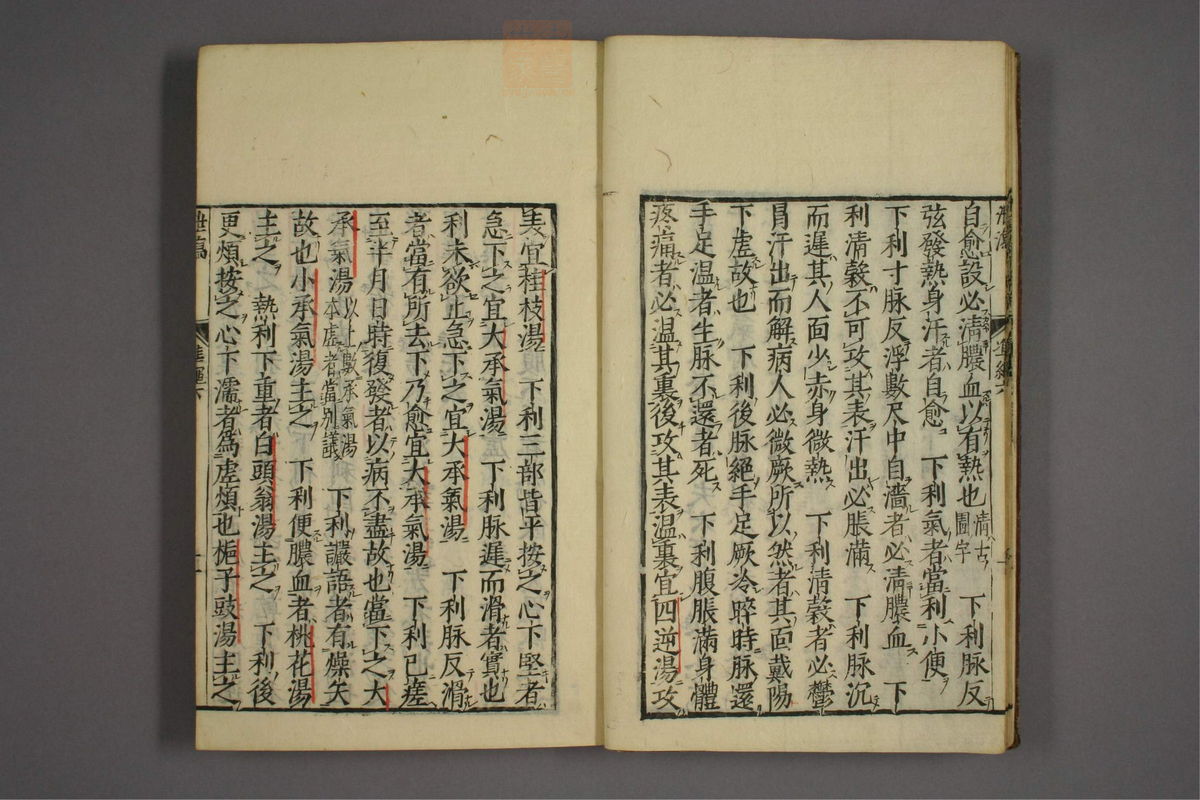 自愈設必淸膿血以有熱也淸古圊字　下利脉反
弦發熱身汗者自愈　下利氣者當利小便
下利寸脉反浮數尺中自濇者必淸膿血　下
利淸穀不可攻其表汗出必脹滿　下利脉沉
而遲其人面少赤身微熱　下利淸穀者必鬱
冐汗出而解病人必微厥所以然者其面戴陽
下虛故也　下利後脉絕手足厥冷晬時脉還
手足溫者生脉不還者死　下利腹脹滿身體
疼痛者必溫其裏後攻其表溫裏宜四逆湯攻
表宜桂枝湯　下利三部皆平按之心下堅者
急下之宜大承氣湯　下利脉遲而滑者實也
利未欲止急下之宜大承氣湯　下利脉反滑
者當有所去下乃愈宜大承氣湯　下利已瘥
至半月日時復發者以病不盡故也當下之大
承氣湯以上數承氣湯本虛者當別議　下利讝語者有燥矢
故也小承氣湯主之　下利便膿血者桃花湯
主之　熱利下重者白頭翁湯主之　下利後
更煩按之心下濡者爲虛煩也梔子豉湯主之